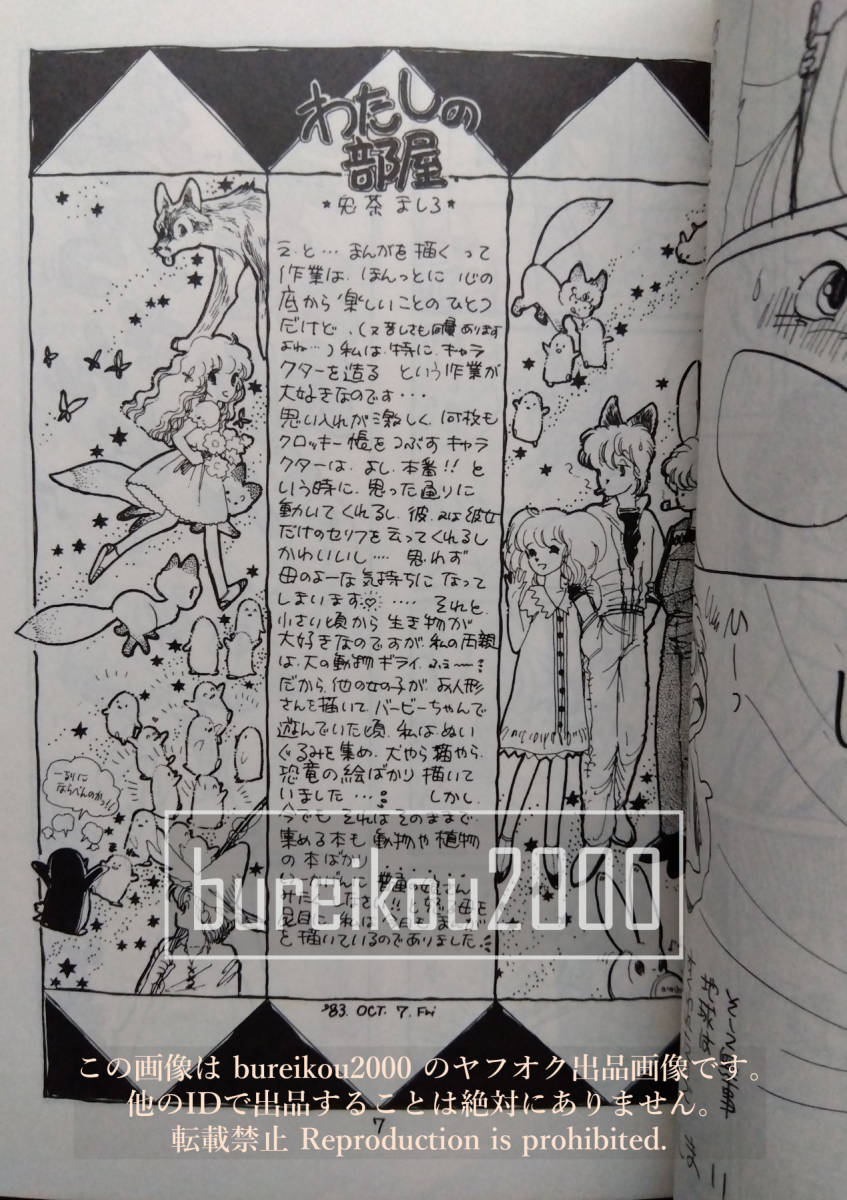 わたしの
部屋
え、と… まんがを描くって
作業は、ほんっとに心の
底から楽しいことのひとつ
だけど、
よね…)私は、特に、キャラ
クターを造る という作業が
大好きなのです・・・
思い入れが激しく、何枚も
クロッキー帳をつぶすキャラ
クターは、よし、本番!! と
いう時に、思った通りに
動いてくれるし、彼、又は彼女
だけのセリフを云ってくれるし
かわいいし…. 思わず
母のよーな気持ちになって
しまいます♡.... それと、
小さい頃から 生き物が
大好きなのですが、私の両親
は、大の動物ギライ、ふえ〜
だから、他の女の子が、お人形
さんを描いて、バービーちゃんで
遊んでいた頃、私はぬい
ぐるみを集め、犬やら猫やら、
恐竜の絵ばかり描いて
いました…。 しかし、
今でも それはそのままで
集める本も 動物や植物
の本ばかり
を描いているのでありました。
一列に
ならべんのかっ!!
'83. OCT. 7. Fri
7
bureikou2000
この画像は bureikou2000 のヤフオク出品画像です。
他のIDで出品することは絶対にありません。
転載禁止 Reproduction is prohibited.